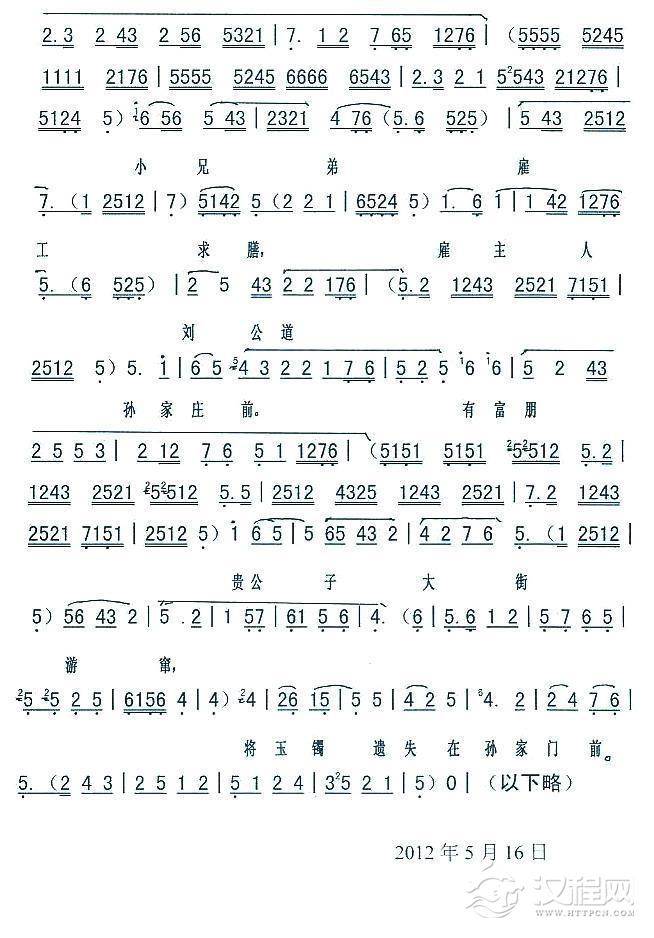 2.3 2 43 2 56 5321 | 7. 1 2 7 65 1276 | (5555 5245
1111 2176 | 5555 5245 6666 6543 | 2.3 2 1 5²543 21276 |
5124 5) 6 56 5 43 | 2321 4 76 (5.6 525) | 5 43 2512
小 兄 弟 雇
7. (1 2512 | 7) 5142 5 (2 2 1 | 6524 5) 1. 6 1 | 1 42 1276
工 求 膳, 雇 主 人
5. (6 525) | 2 5 43 2 2 176 | (5.2 1243 2521 7151 |
刘 公 道
2512 5) 5. i | 6 5 ⁵4 3 2 2 1 7 6 | 5 2 5 ¹6 ¹6 | 5 2 43
孙 家 庄 前。 有 富 朋
2 5 5 3 | 2 12 7 6 5 1 1276 | (5151 5151 ²5²512 5.2 |
1243 2521 ²5²512 5.5 | 2512 4325 1243 2521 | 7.2 1243
2521 7151 | 2512 5) i 6 5 | 5 65 43 2 | 4 2 7 6 5. (1 2512 |
贵 公 子 大 街
5) 56 43 2 | 5 .2 | 1 57 | 61 5 6 | 4. (6 | 5.6 1 2 | 5 7 6 5 |
游 窜,
²5 ²5 2 5 | 6156 4 | 4) ²4 | 26 15 | 5 5 | 4 2 5 | ⁶4. 2 | 2 4 7 6 |
将 玉 镯 遗 失 在 孙 家 门 前。
5. (2 4 3 | 2 5 1 2 | 5 1 2 4 | 3²5 2 1 | 5) 0 | (以下略)
2012 年 5 月 16 日
汉程网
WWW.HTTPCN.COM